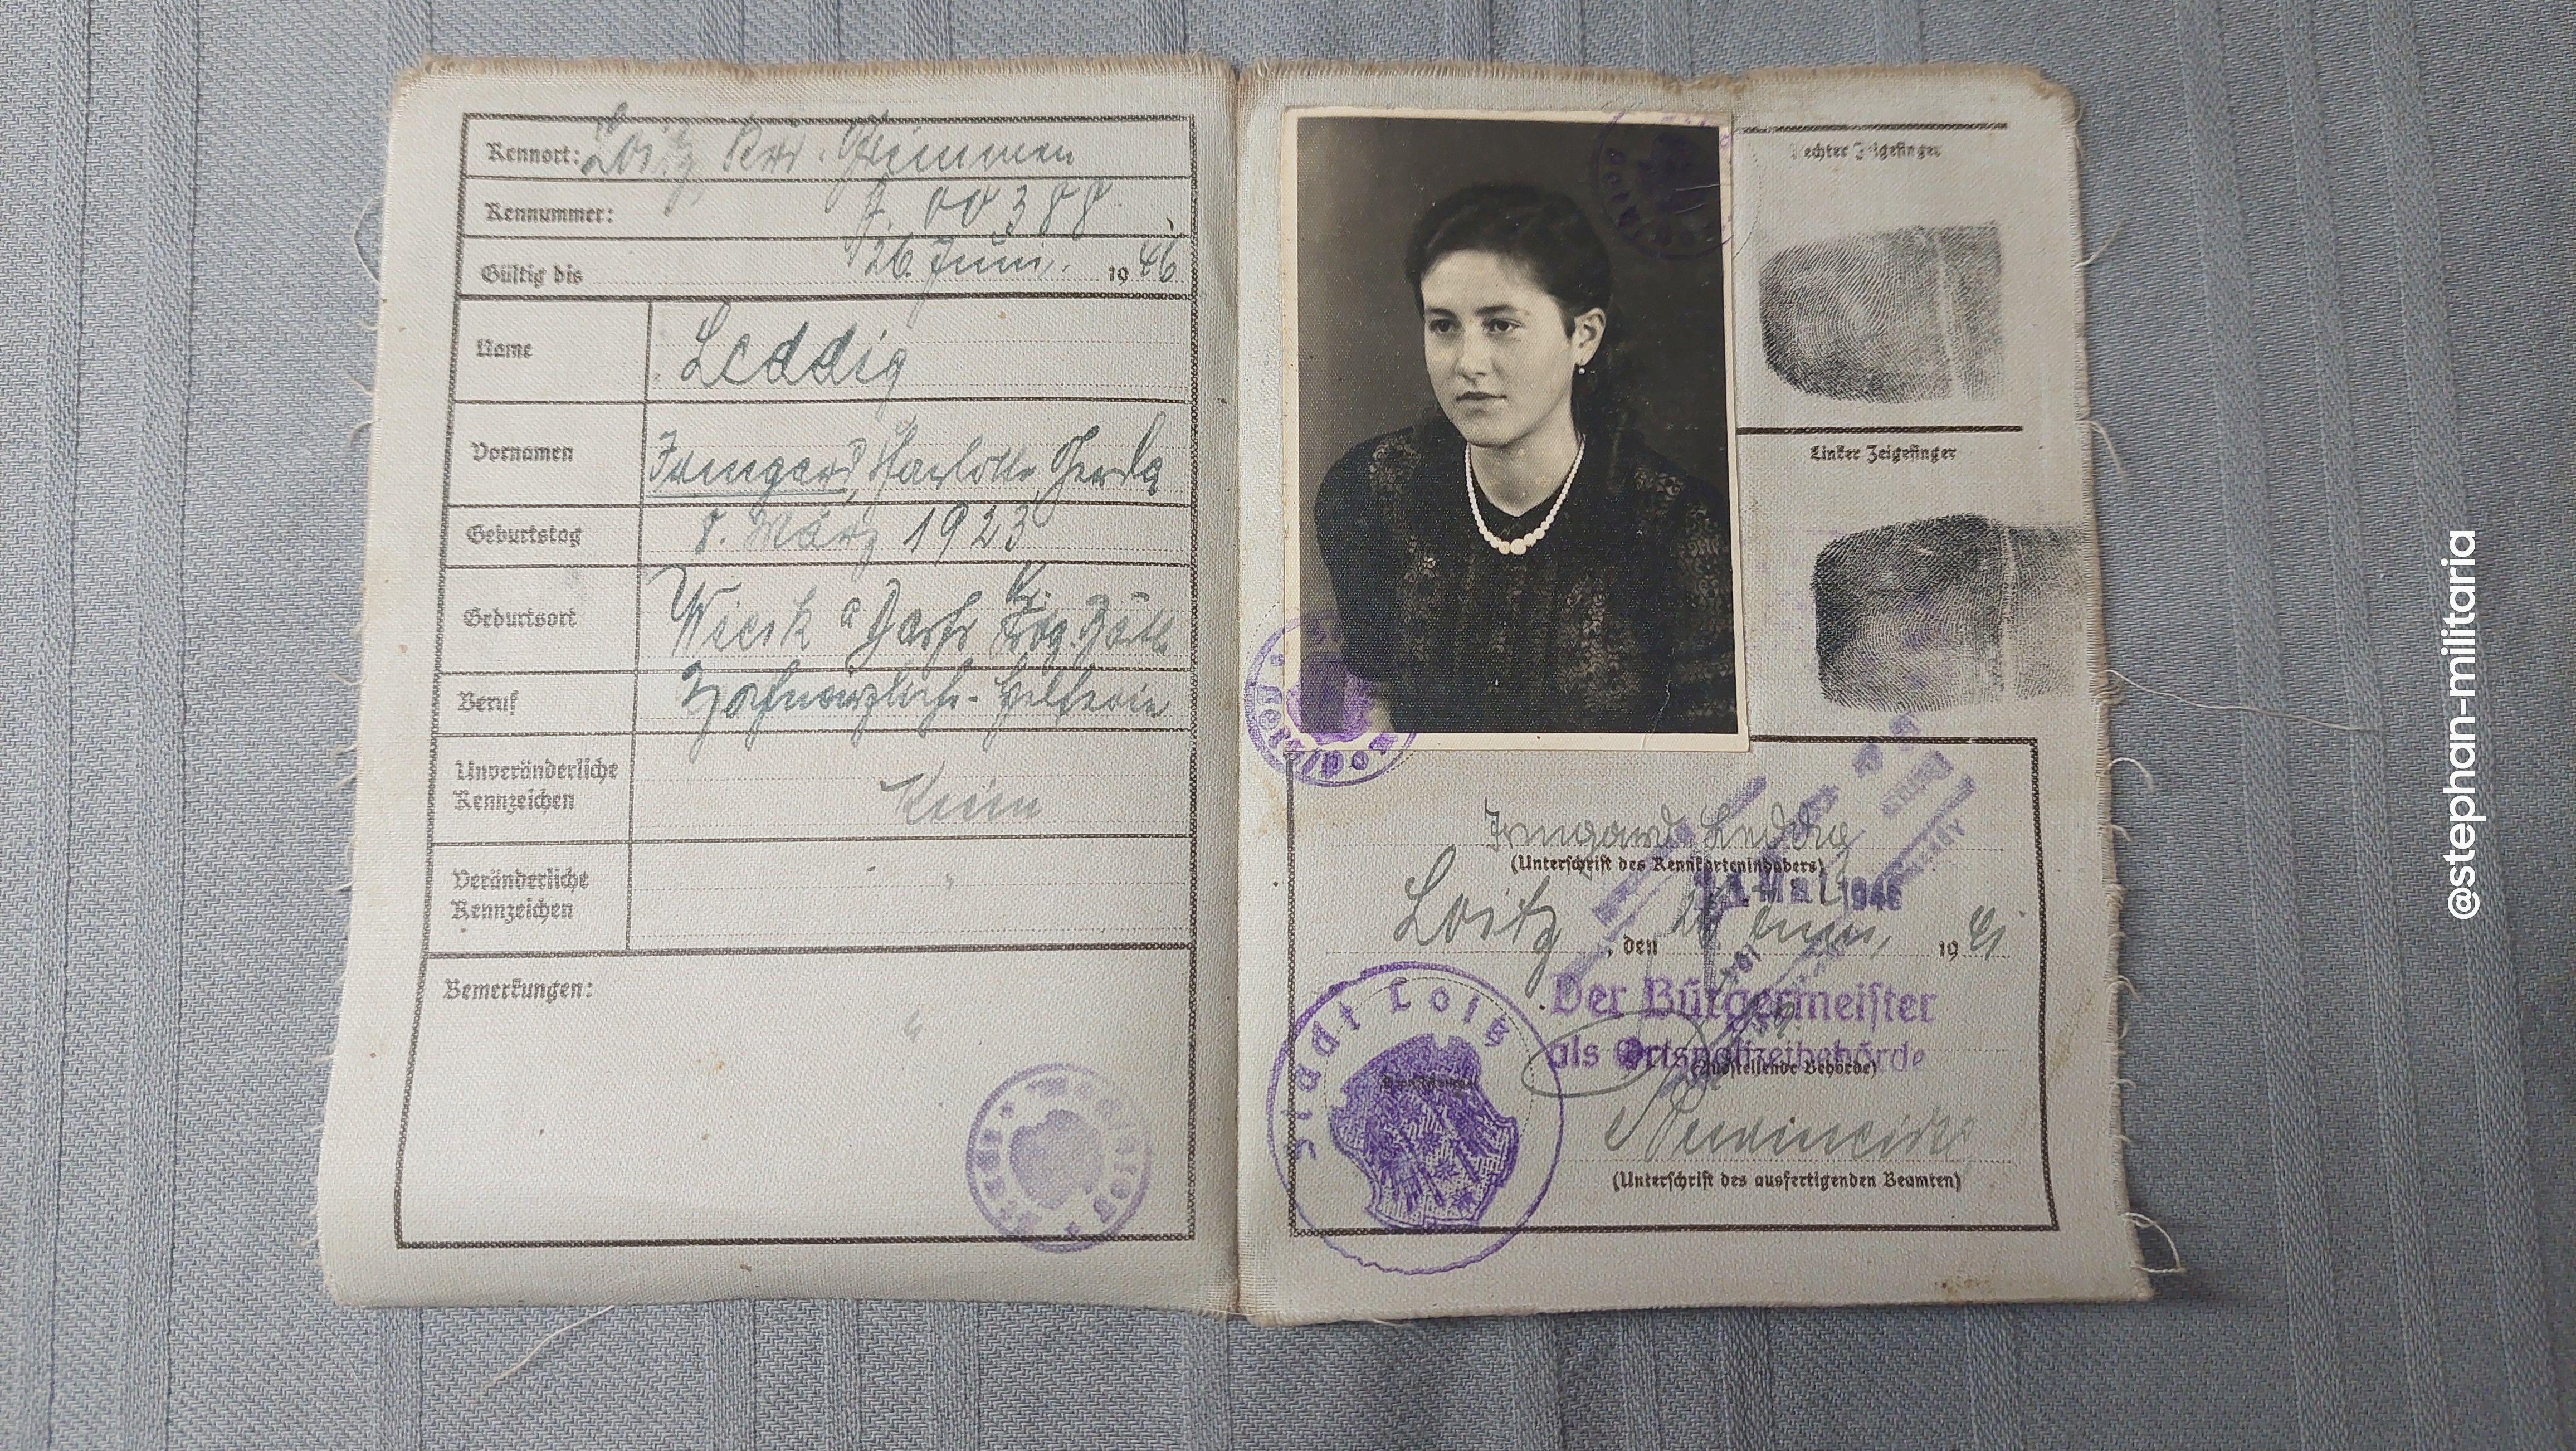 Kennort: Loitz Krs. Grimmen
Kennummer: A 00388
Gültig bis 26. Juni 1946
Name Leddig
Vornamen Irmgard, Charlotte, Gerda
Geburtstag 8. März 1923
Geburtsort Wieck a Darß
Beruf
Unveränderliche Kennzeichen
Veränderliche Kennzeichen
Bemerkungen:
Rechter Zeigefinger
Linker Zeigefinger
Irmgard Leddig
(Unterschrift des Kennkarteninhabers)
Mai 1946
Loitz, den 26. Juni 1941
Der Bürgermeister
als Ortspolizeibehörde
(Ausstellende Behörde)
(Unterschrift des ausfertigenden Beamten)
Stadt Loitz
@stephan-militaria